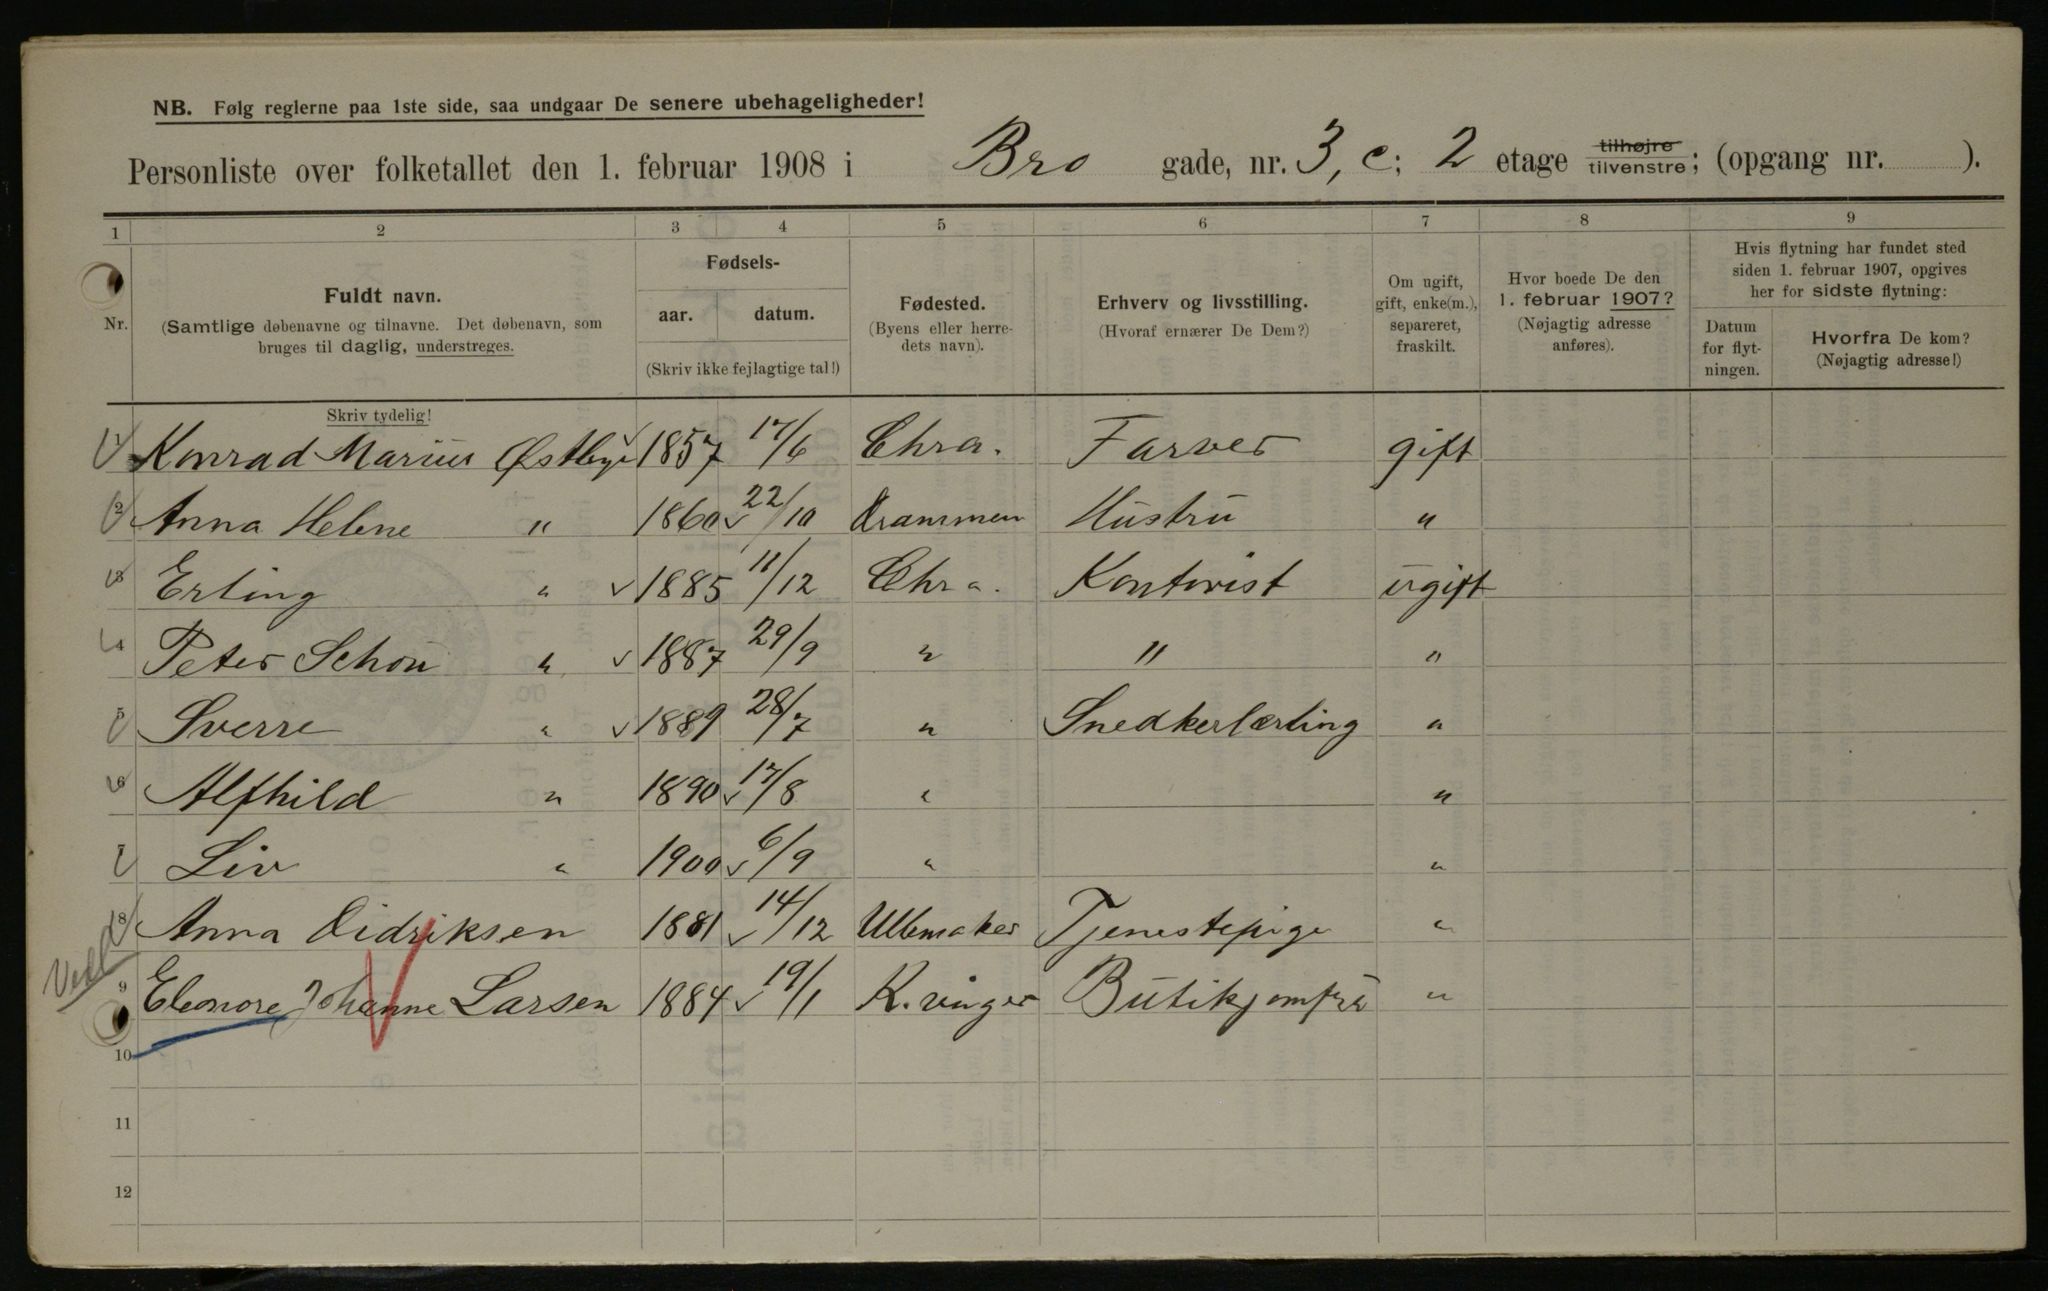 NB. Følg reglerne paa 1ste side, saa undgaar De senere ubehageligheder!
Personliste over folketallet den 1. februar 1908 i Bro gade, nr. 3, c; 2 etage tilhøjre tilvenstre; (opgang nr. ).
1 2 3 4 5 6 7 8 9
Nr.
Fuldt navn.
(Samtlige døbenavne og tilnavne. Det døbenavn, som
bruges til daglig, understreges.
Skriv tydelig!
Fødsels-
aar. datum.
(Skriv ikke fejlagtige tal!)
Fødested.
(Byens eller herre-
dets navn).
Erhverv og livsstilling.
(Hvoraf ernærer De Dem?)
Om ugift,
gift, enke(m.),
separeret,
fraskilt.
Hvor boede De den
1. februar 1907?
(Nøjagtig adresse
anføres).
Hvis flytning har fundet sted
siden 1. februar 1907, opgives
her for sidste flytning:
Datum
for flyt-
ningen.
Hvorfra De kom?
(Nøjagtig adresse!)
1 Konrad Marius Østbye 1857 17/6 Chra. Farver gift
2 Anna Helene " 1860 22/10 Drammen Hustru "
3 Erling " 1885 11/12 Chra. Kontorist ugift
4 Peter Schou " 1887 29/9 " " "
5 Sverre " 1889 28/7 " Snedkerlærling "
6 Alfhild " 1890 17/8 " "
7 Liv " 1900 6/9 " "
8 Anna Didriksen 1881 14/12 Ullensaker Tjenestepige "
9 Eleonore Johanne Larsen 1884 19/1 K.vinger Butikjomfru "
10
11
12